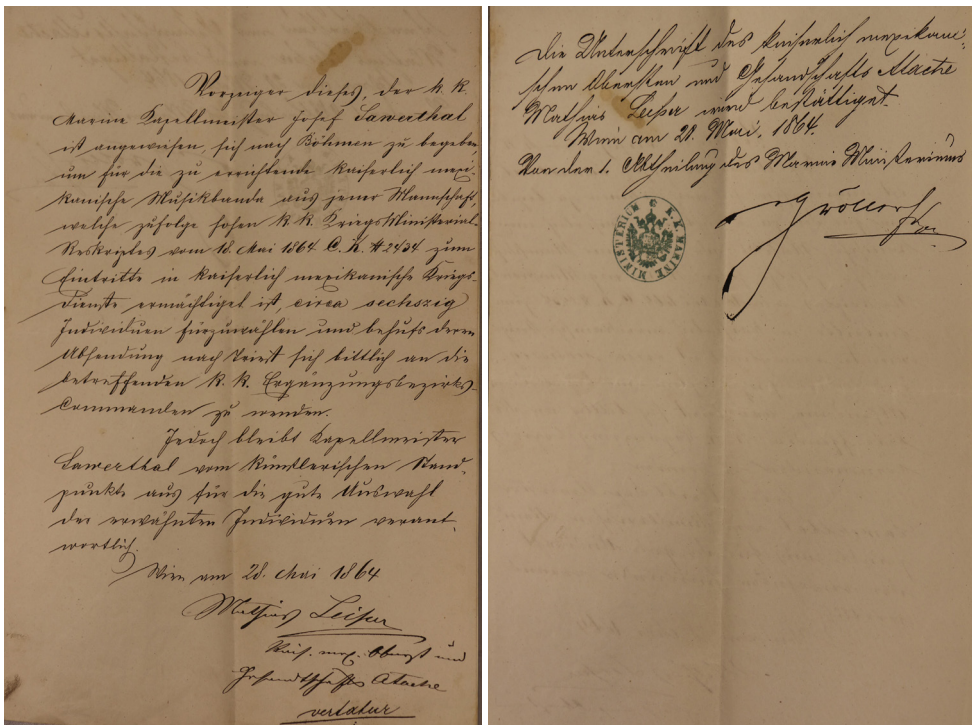 Vorzeiger dieses, der k. k.
Marine Kapellmeister Josef Sawerthal
ist angewiesen, sich nach Böhmen zu begeben
um für die zu errichtende kaiserlich mexi-
kanische Musikbanda aus jener Mannschaft,
welche zufolge hohen k. k. Kriegs Ministerial-
Reskriptes vom 18. Mai 1864 C. K. # 2434 zum
Eintritte in kaiserlich mexikanische Kriegs-
dienste ermächtiget ist, circa sechszig
Individuen fürzuwählen und behufs deren
Absendung nach Triest sich bittlich an die
betreffenden k. k. Ergänzungsbezirks-
Commanden zu wenden.
Jedoch bleibt Kapellmeister
Sawerthal vom künstlerischen Stand-
punkte aus für die gute Auswahl
der erwähnten Individuen verant-
wortlich.
Wien am 28. Mai 1864
Mathias Leisser
Kais. mex. Oberst und
Gesandtschafts Atache
Die Unterschrift des kaiserlich mexikani-
schen Obersten und Gesandschafts Atache
Mathias Leisser wird bestättiget.
Wien am 28. Mai. 1864.
Von der 1. Abtheilung des Marine Ministeriums
K. K. MARINE MINISTERIUM